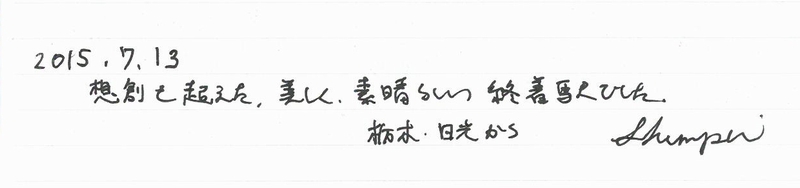 2015.7.13
想創を超えた、美しく、素晴らしい終着駅でした。
栃木・日光から Shumpei